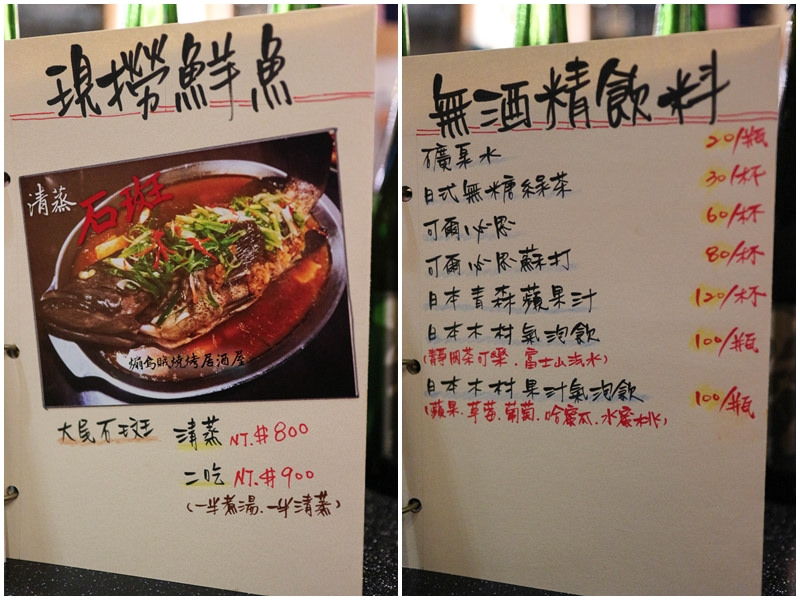 現撈鮮魚
清蒸 石斑
烏賊燒烤居酒屋
大民石斑 清蒸 NT.$800
二吃 NT.$900
(一半煮湯.一半清蒸)
無酒精飲料
礦泉水 20/瓶
日式無糖綠茶 30/杯
可爾必思 60/杯
可爾必思蘇打 80/杯
日本青森蘋果汁 120/杯
日本木村氣泡飲 100/瓶
(靜岡茶可樂.富士山汽水)
日本木村果汁氣泡飲 100/瓶
(蘋果.草莓.葡萄.哈蜜瓜.水蜜桃)